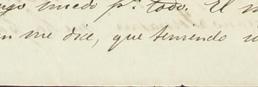 miedo pr. todo. El
me dice, que temiendo